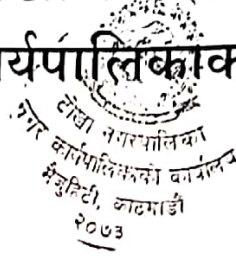 र्यपालिकाक
टोखा नगरपालिका
नगर कार्यपालिकाको कार्यालय
भैमुहिटी, काठमाडौं
२०७३